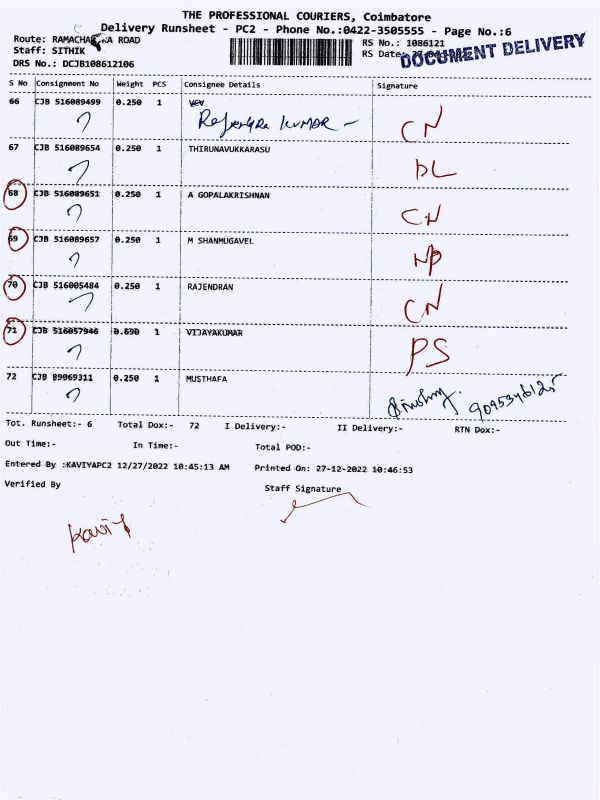 THE PROFESSIONAL COURIERS, Coimbatore
Delivery Runsheet - PC2 - Phone No.:0422-3505555 - Page No.:6
Route: ROAD
RS No.: 1086121
Staff: SITHIK
RS Date:
DOCUMENT DELIVERY
DRS No.: DCJB108612106
S No Consignment No Weight PCS Consignee Details Signature
66 CJB 516089499 0.250 1 VCV
Rajendra KUMAR - CN
67 CJB 516089654 0.250 1 THIRUNAVUKKARASU
DL
68 CJB 516089651 0.250 1 A GOPALAKRISHNAN
CN
69 CJB 516089657 0.250 1 M SHANMUGAVEL
NP
70 CJB 516005484 0.250 1 RAJENDRAN
CN
71 CJB 516057946 0.690 1 VIJAYAKUMAR
PS
72 CJB 89069311 0.250 1 MUSTHAFA
9095346125
Tot. Runsheet:- 6 Total Dox:- 72 I Delivery:- II Delivery:- RTN Dox:-
Out Time:- In Time:- Total POD:-
Entered By :KAVIYAPC2 12/27/2022 10:45:13 AM Printed On: 27-12-2022 10:46:53
Verified By Staff Signature